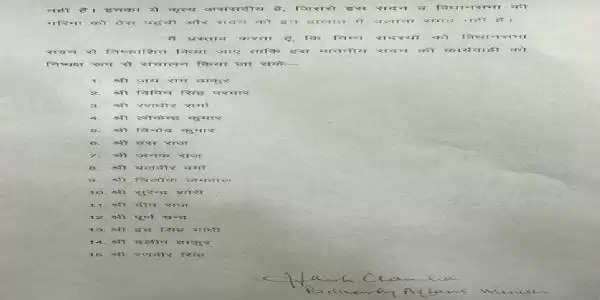 नहीं है। इनका ये कृत्य असंसदीय है, जिससे इस सदन व विधानसभा की
गरिमा को ठेस पहुंची और सदन को इन हालात में चलाना संभव नहीं है।
मैं प्रस्ताव करता हूं, कि निम्न सदस्यों को विधानसभा
सदन से निष्कासित किया जाए ताकि इस माननीय सदन की कार्यवाही को
निष्पक्ष रूप से संचालन किया जा सके:—
1. श्री जय राम ठाकुर
2. श्री विपिन सिंह परमार
3. श्री रणधीर शर्मा
4. श्री लोकेन्द्र कुमार
5. श्री विनोद कुमार
6. श्री हंस राज
7. श्री जनक राज
8. श्री बलबीर वर्मा
9. श्री त्रिलोक जम्वाल
10. श्री सुरेन्द्र शौरी
11. श्री दीप राज
12. श्री पूर्ण चन्द
13. श्री इन्द्र सिंह गांधी
14. श्री दलीप ठाकुर
15. श्री रणवीर सिंह
Affairs Minister